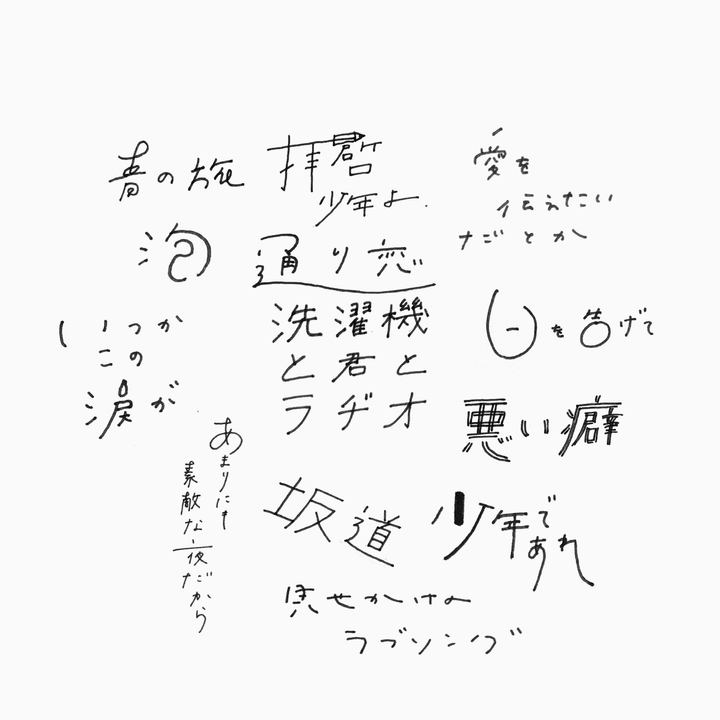 青の旅
拝啓
少年よ.
愛を
伝えたい
だとか
泡
通り恋
いつか
この
涙が
洗濯機
と君と
ラヂオ
を告げて
悪い癖
あまりにも
素敵な夜だから
坂道
少年で
あれ
見せかけの
ラブソング